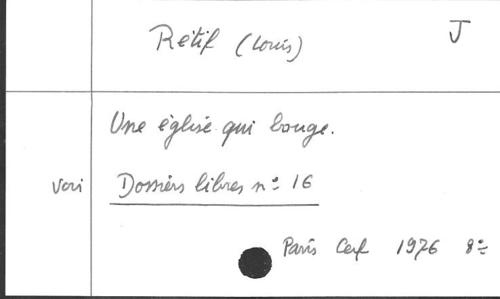 Rétif (Louis)
J
Une église qui bouge.
voir
Dossiers libres n° 16
Paris Cerf 1976 8°